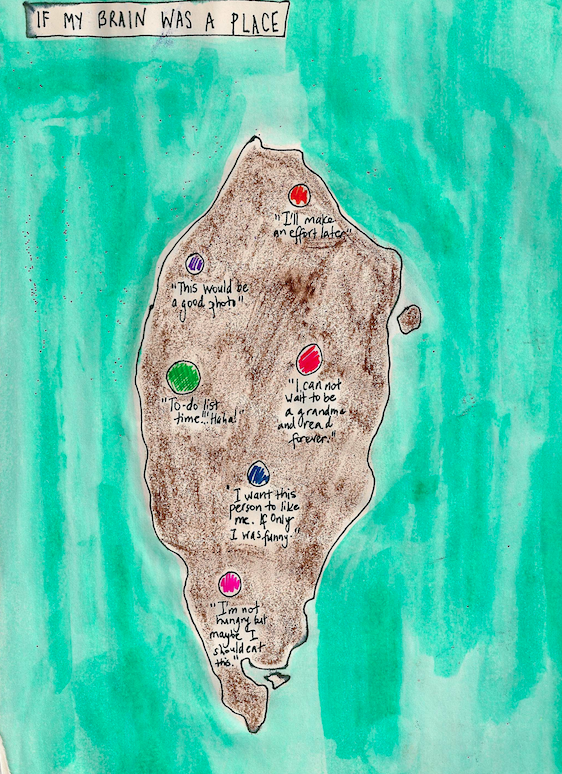 IF MY BRAIN WAS A PLACE
"I'll make
an effort later"
"This would be
a good photo"
"I can not
wait to be
a grandma
and read
forever."
"To-do list
time..."Haha!"
"I want this
person to like
me. If only
I was funny."
"I'm not
hungry but
maybe I
should eat
this."